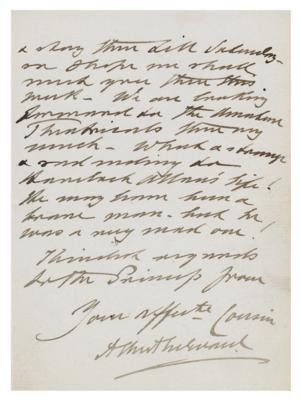 a story there till Saturday
so I hope we shall
much you there this
week - We are looking
forward to the Amateur
Theatricals there very
much - What a strange
a sad ending to
life!
He may have been a
brave man - but he
was a very mad one!
regards
to the Princess from
Your affecte Cousin
Albert Edward